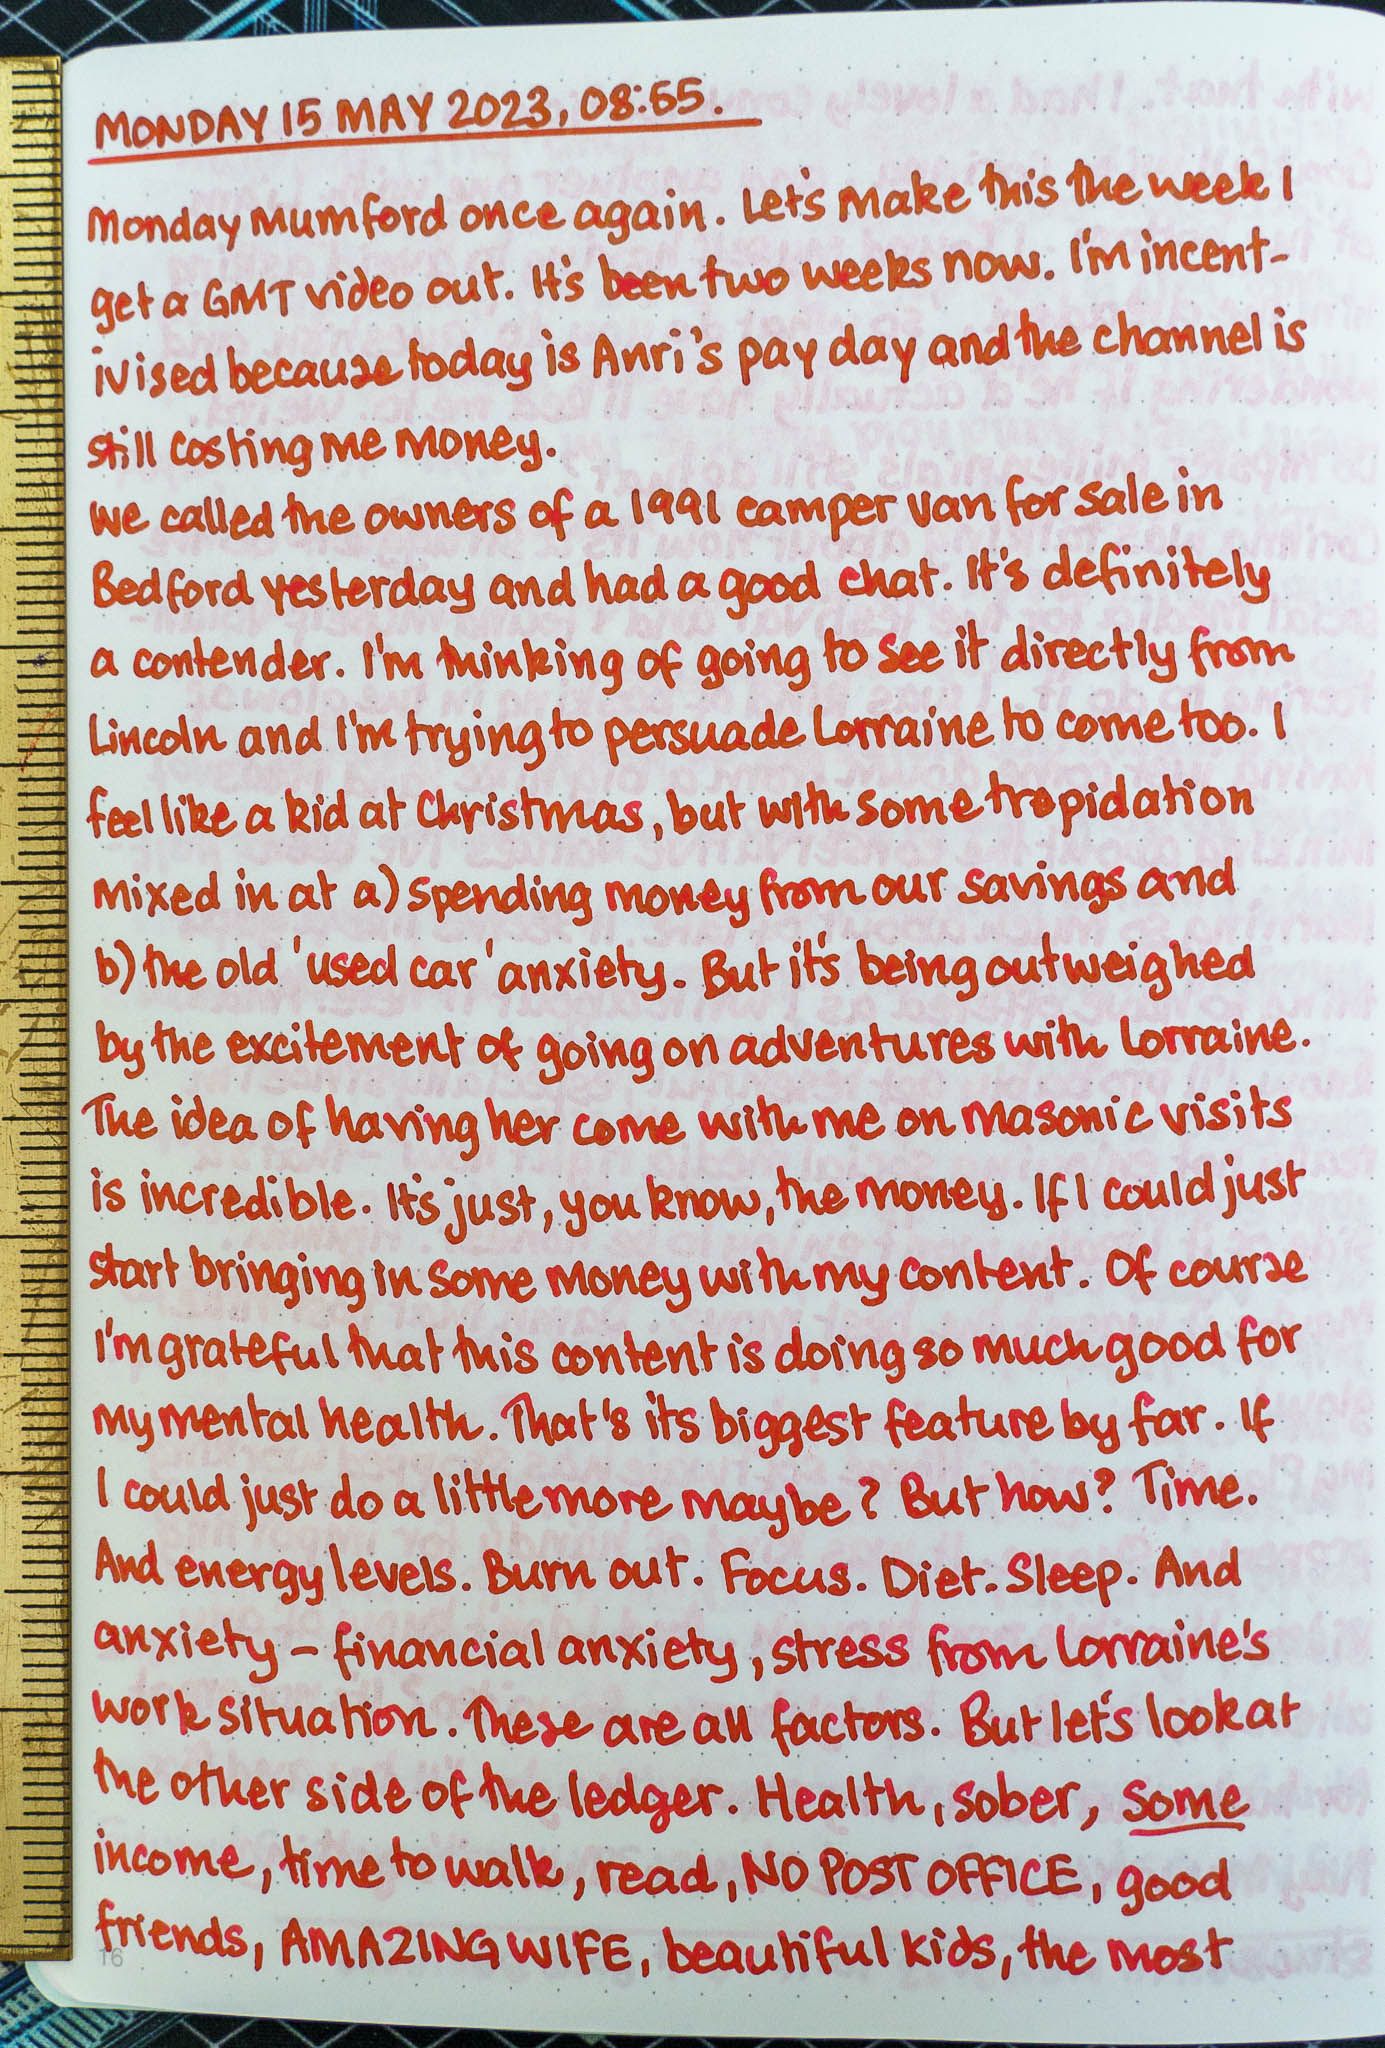 MONDAY 15 MAY 2023, 08:55.
Monday Mumford once again. Let's make this the week I
get a GMT video out. It's been two weeks now. I'm incent-
ivised because today is Anri's pay day and the channel is
still costing me money.
We called the owners of a 1991 camper van for sale in
Bedford yesterday and had a good chat. It's definitely
a contender. I'm thinking of going to see it directly from
Lincoln and I'm trying to persuade Lorraine to come too. I
feel like a kid at Christmas, but with some trepidation
mixed in at a) spending money from our savings and
b) the old 'used car' anxiety. But it's being outweighed
by the excitement of going on adventures with Lorraine.
The idea of having her come with me on Masonic visits
is incredible. It's just, you know, the money. If I could just
start bringing in some money with my content. Of course
I'm grateful that this content is doing so much good for
my mental health. That's its biggest feature by far. If
I could just do a little more maybe? But how? Time.
And energy levels. Burn out. Focus. Diet. Sleep. And
anxiety – financial anxiety, stress from Lorraine's
work situation. These are all factors. But let's look at
the other side of the ledger. Health, sober, some
income, time to walk, read, NO POST OFFICE, good
friends, AMAZING WIFE, beautiful kids, the most
16